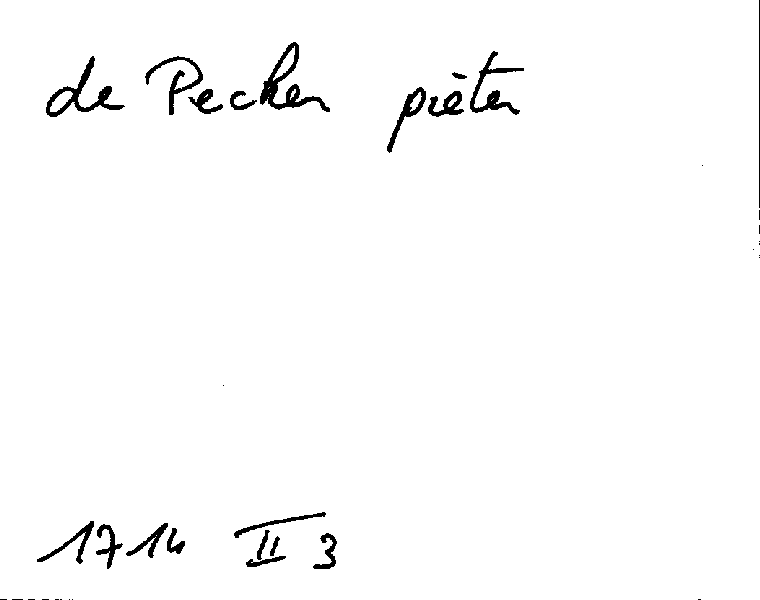 de Pecker pieter
1714 II 3